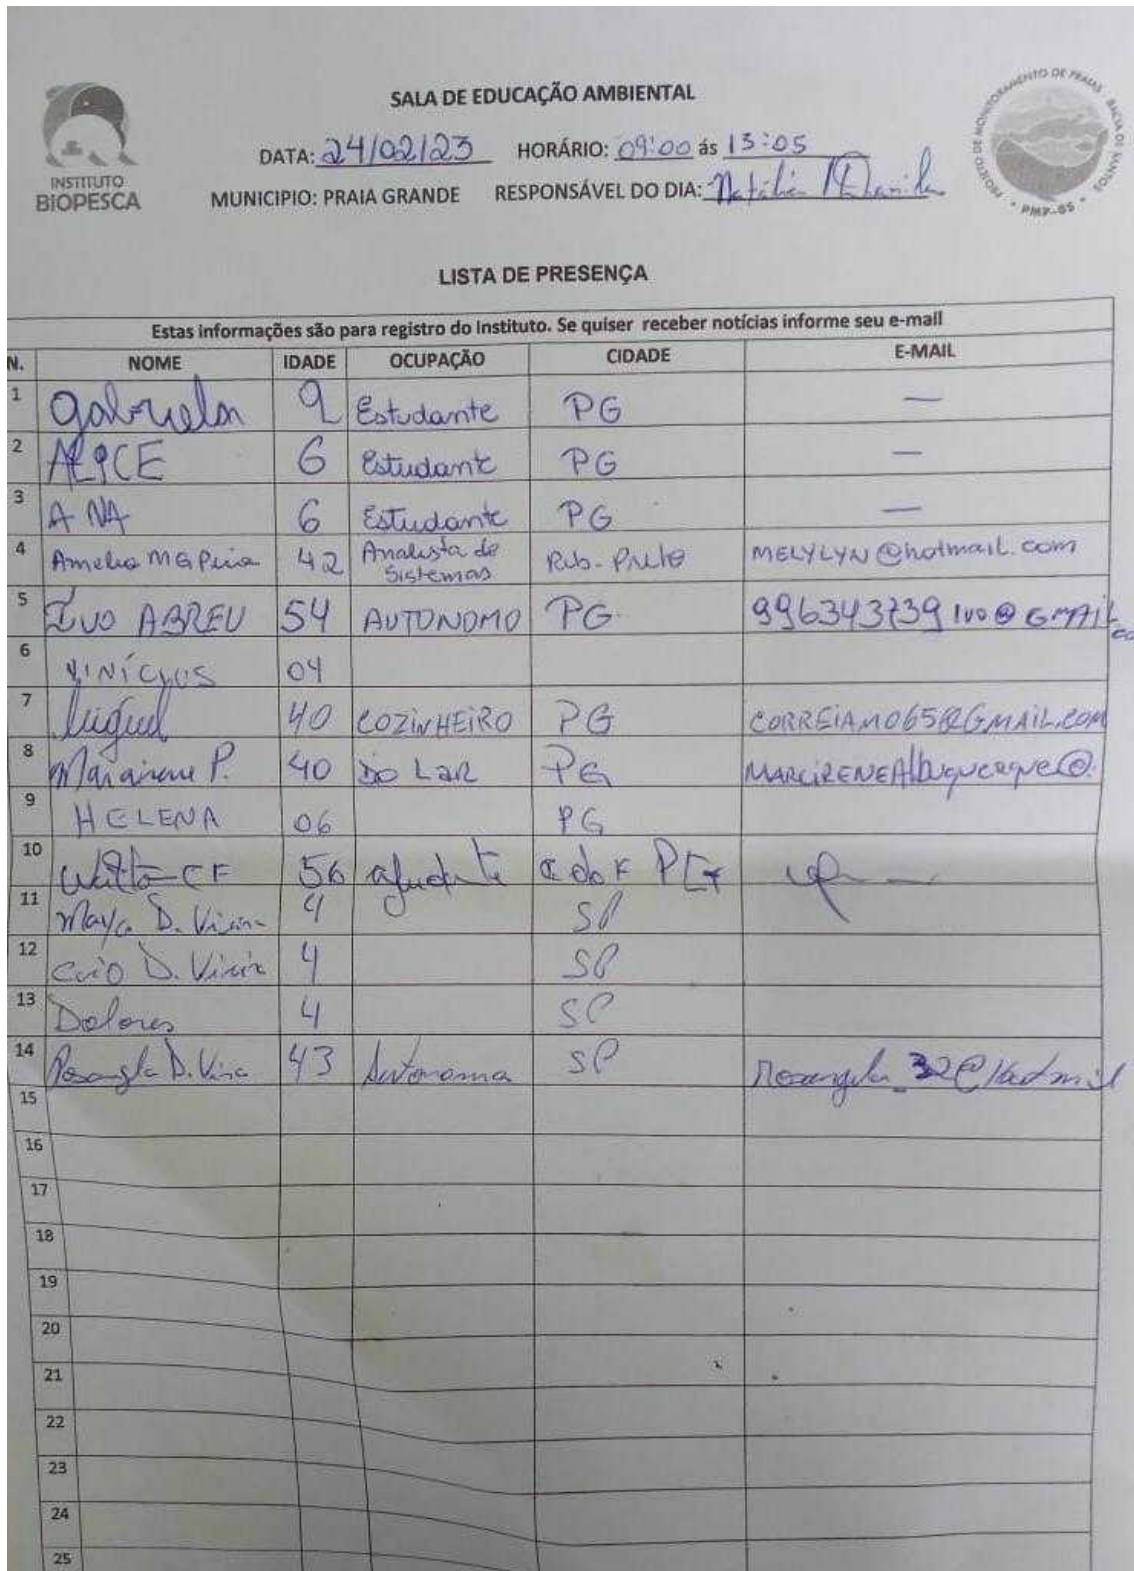 SALA DE EDUCAÇÃO AMBIENTAL
DATA: 24/02/23 HORÁRIO: 09:00 ás 13:05
MUNICIPIO: PRAIA GRANDE RESPONSÁVEL DO DIA: Natália
INSTITUTO
BIOPESCA
PROJETO DE MONITORAMENTO DE PRAIAS BACIA DE SANTOS
PMP-BS
LISTA DE PRESENÇA
Estas informações são para registro do Instituto. Se quiser receber notícias informe seu e-mail
N. NOME IDADE OCUPAÇÃO CIDADE E-MAIL
1 gabriela 9 Estudante PG —
2 ALICE 6 Estudante PG —
3 ANA 6 Estudante PG —
4 Amelia MG 42 Analista de Sistemas Rib. Preto MELYLYN@hotmail.com
5 IVO ABREU 54 AUTONOMO PG. 996343739ivo@GMAIL.co
6 VINÍCIUS 04
7 Miguel 40 COZINHEIRO PG CORREIAMO65@GMAIL.COM
8 P. 40 DO LAR PG MARCIRENEAlbuquerque@.
9 HELENA 06 PG
10 CF 56 ajudante
11 D. Vieira 4 SP
12 Caio D. Vieira 4 SP
13 Dolores 4 SP
14 Rosangela D. 43 Autonoma SP Rosangela_32@
15
16
17
18
19
20
21
22
23
24
25